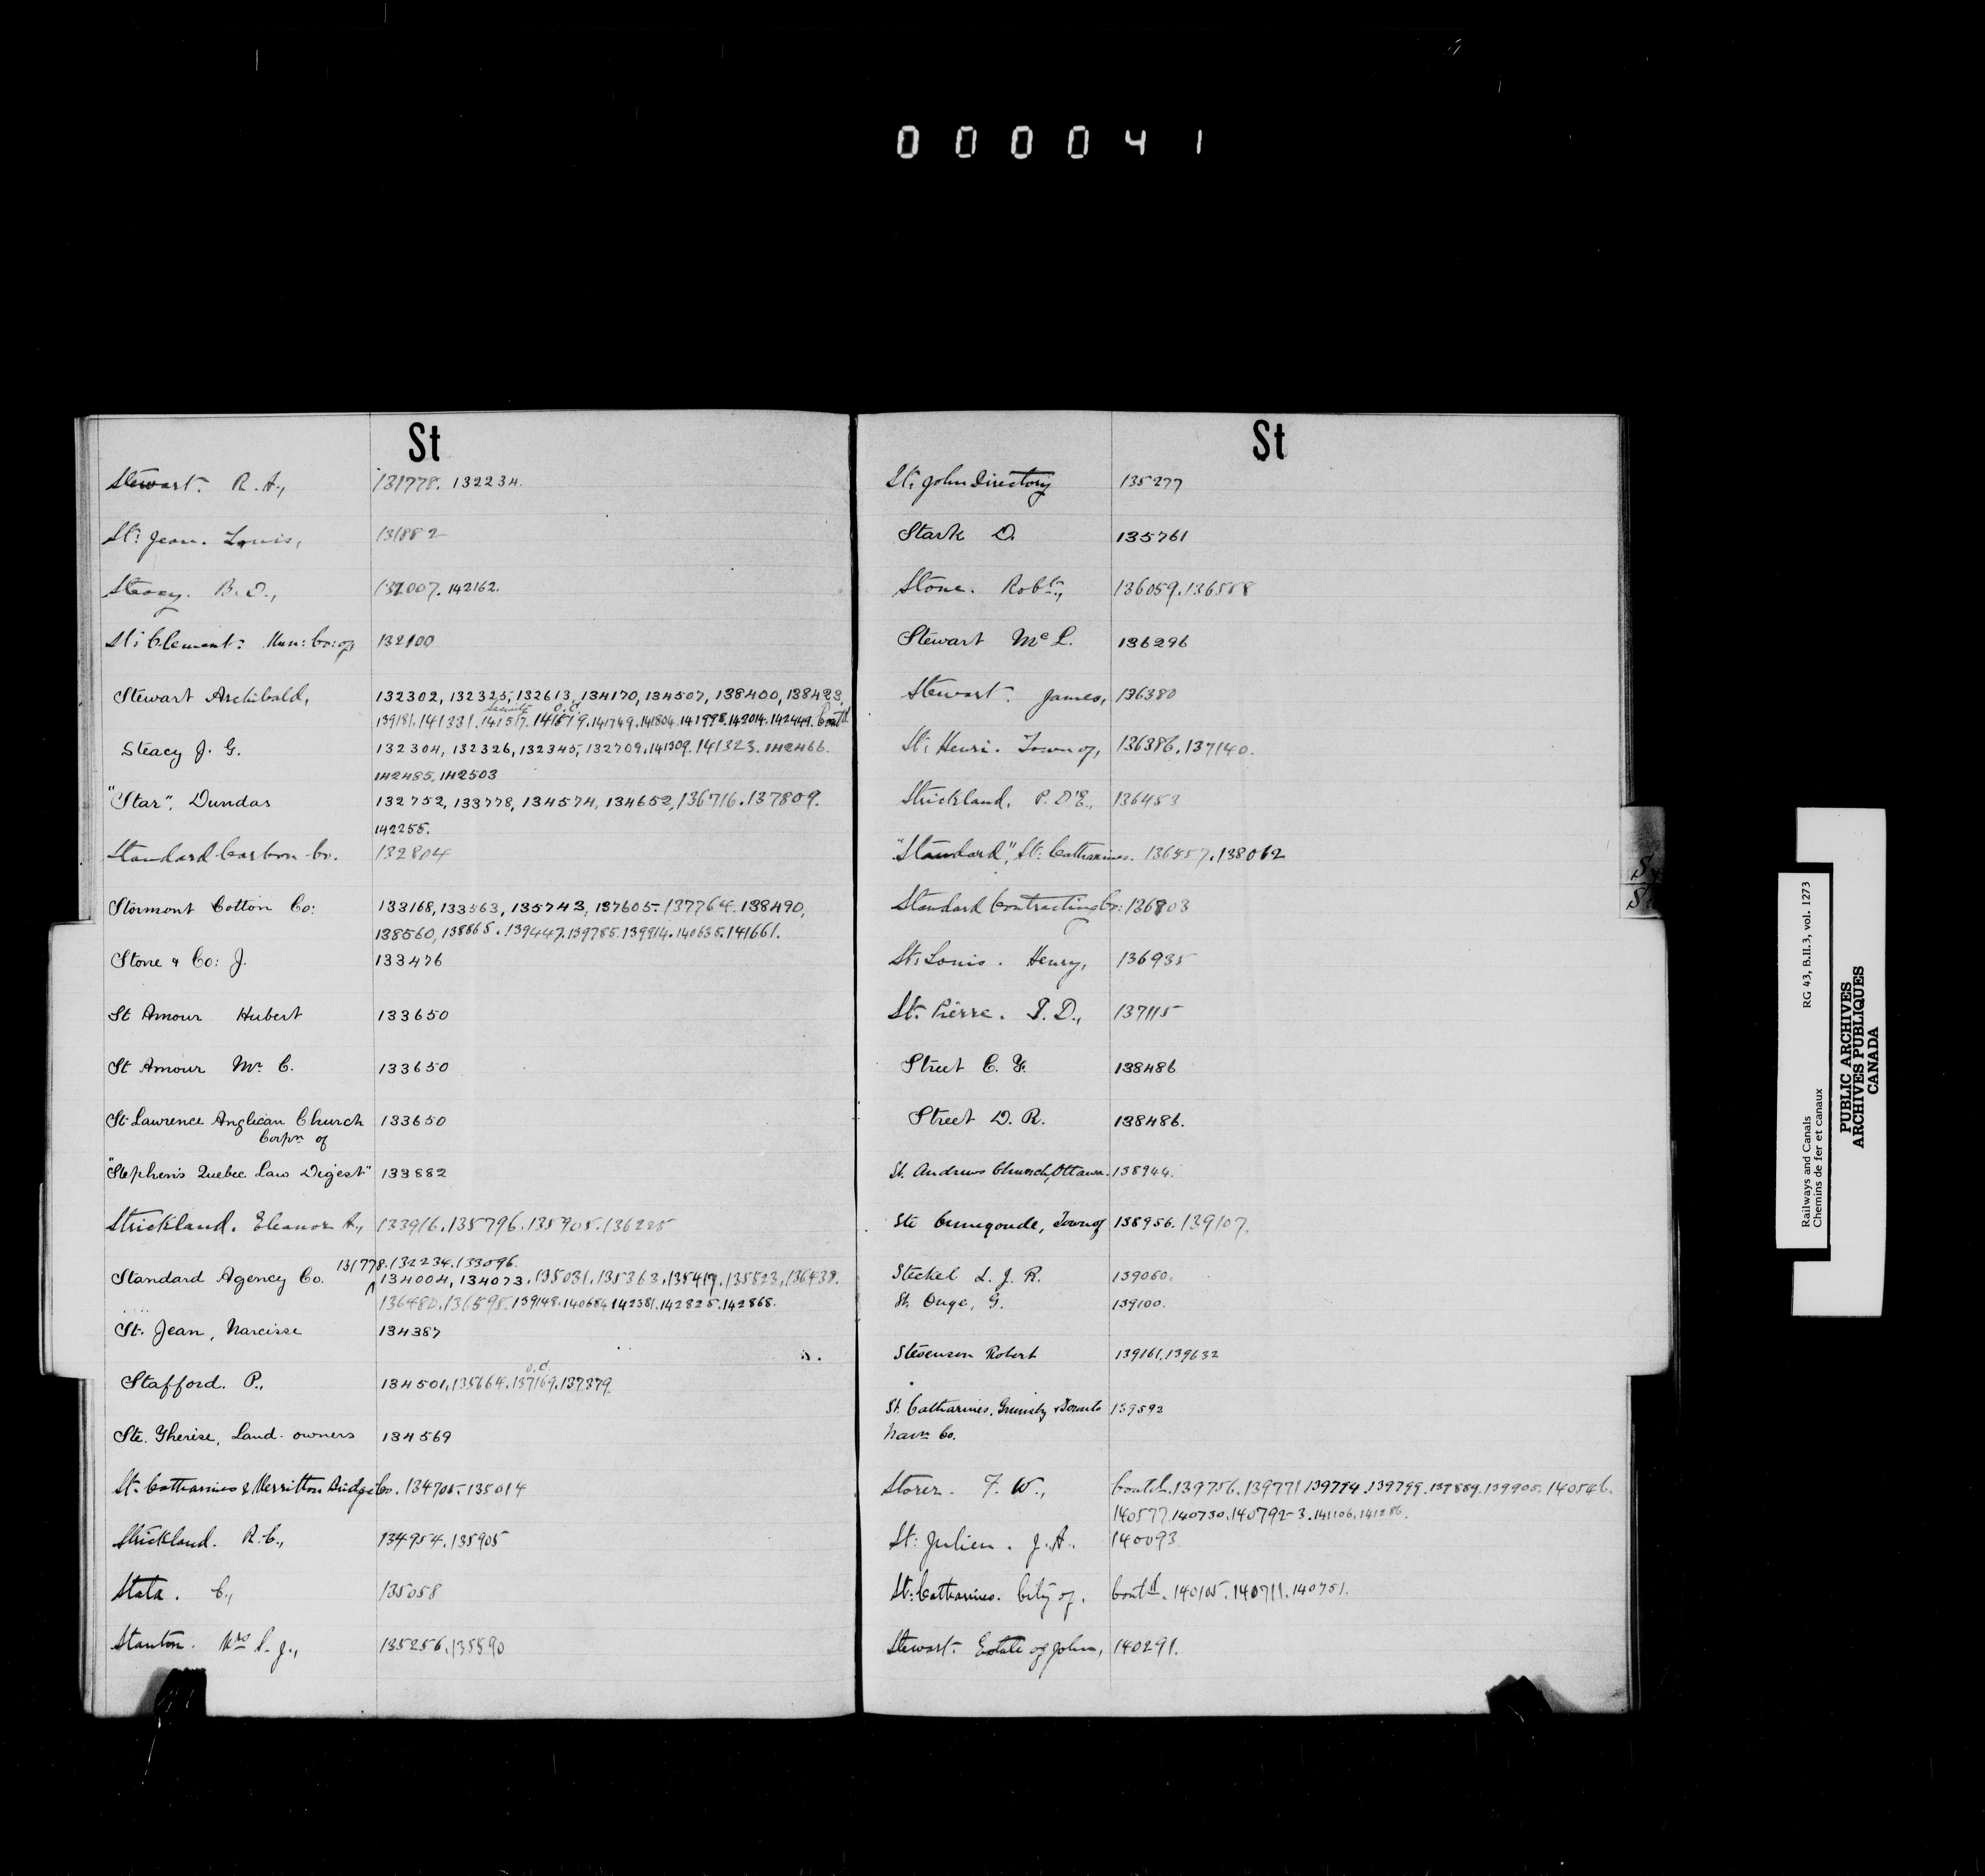 000041
St
Stewart. R. A., 131778. 132234.
St: Jean. Louis, 131882
Steacy. B. D., 132007. 142162.
St: Clement: Mun: Co: of, 132100
Stewart Archibald, 132302, 132325, 132613, 134170, 134507, 138400, 138423,
139181. 141331. 141517. 141679. 141749. 141804. 141998. 142014. 142449. Cont'd
Steacy J. G. 132304, 132326, 132345, 132709. 141309. 141323. 142466.
142485, 142503
"Star", Dundas 132752, 133778, 134574, 134652, 136716. 137809.
142255.
Standard Carbon Co. 132804
Stormont Cotton Co: 133168, 133563, 135743, 137605. 137764. 138490,
138560, 138865. 139447. 139785. 139914. 140635. 141661.
Stone & Co: J. 133476
St Amour Hubert 133650
St Amour Mr. C. 133650
St. Lawrence Anglican Church 133650
Corpn of
"Stephen's Quebec Law Digest" 133882
Strickland. Eleanor A., 133916. 135796. 135905. 136225
131778. 132234. 133096.
Standard Agency Co. 134004, 134073. 135031. 135363. 135419. 135523. 136438.
136480. 136598. 139148. 140684 142381. 142825. 142868.
St. Jean, Narcisse 134387
o.d.
Stafford. P., 134501, 135664. 137169. 137379.
Ste. Therése, Land-owners 134569
St. Catharines & Merritton Bridge Co. 134705. 135014
Strickland. R. C., 134954. 135905
Stata. C., 135058
Stanton. Mrs S. J., 135256. 135590
St
St: John Directory 135277
Stark D. 135761
Stone. Robt., 136059. 136558
Stewart McL. 136296
Stewart. James, 136380
St: Henri. Town of, 136386. 137140.
Strickland. P. D'E., 136453
"Standard", St: Catharines. 136557. 138062
Standard Contracting Co: 136803
St: Louis. Henry, 136935
St. Pierre. P. D., 137115
Street C. F. 138486
Street D. R. 138486.
St. Andrews Church, Ottawa. 138944.
Ste Cunegonde, Town of 138956. 139107.
Steckel L. J. R. 139060.
St. Onge, G. 139100.
Stevenson Robert 139161, 139632
St. Catharines, Grimsby & Toronto 139592
Navn Co.
Storer. F. W., Contd. 139756. 139771 139794. 139799. 139889. 139905. 140546.
140577. 140730. 140792-3. 141106. 141286.
St: Julien. J. A. 140093
St: Catharines. City of. Contd. 140105. 140711. 140751.
Stewart. Estate of John, 140291.
Railways and Canals RG 43, B.II.3, vol. 1273
Chemins de fer et canaux
PUBLIC ARCHIVES
ARCHIVES PUBLIQUES
CANADA